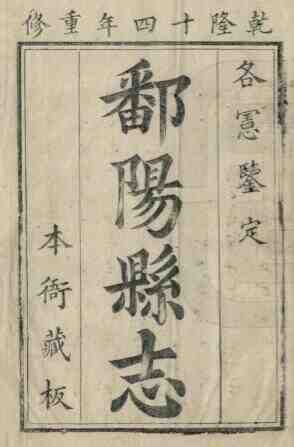 乾隆十四年重修
各憲鑒定
鄱陽縣志
本衙藏板